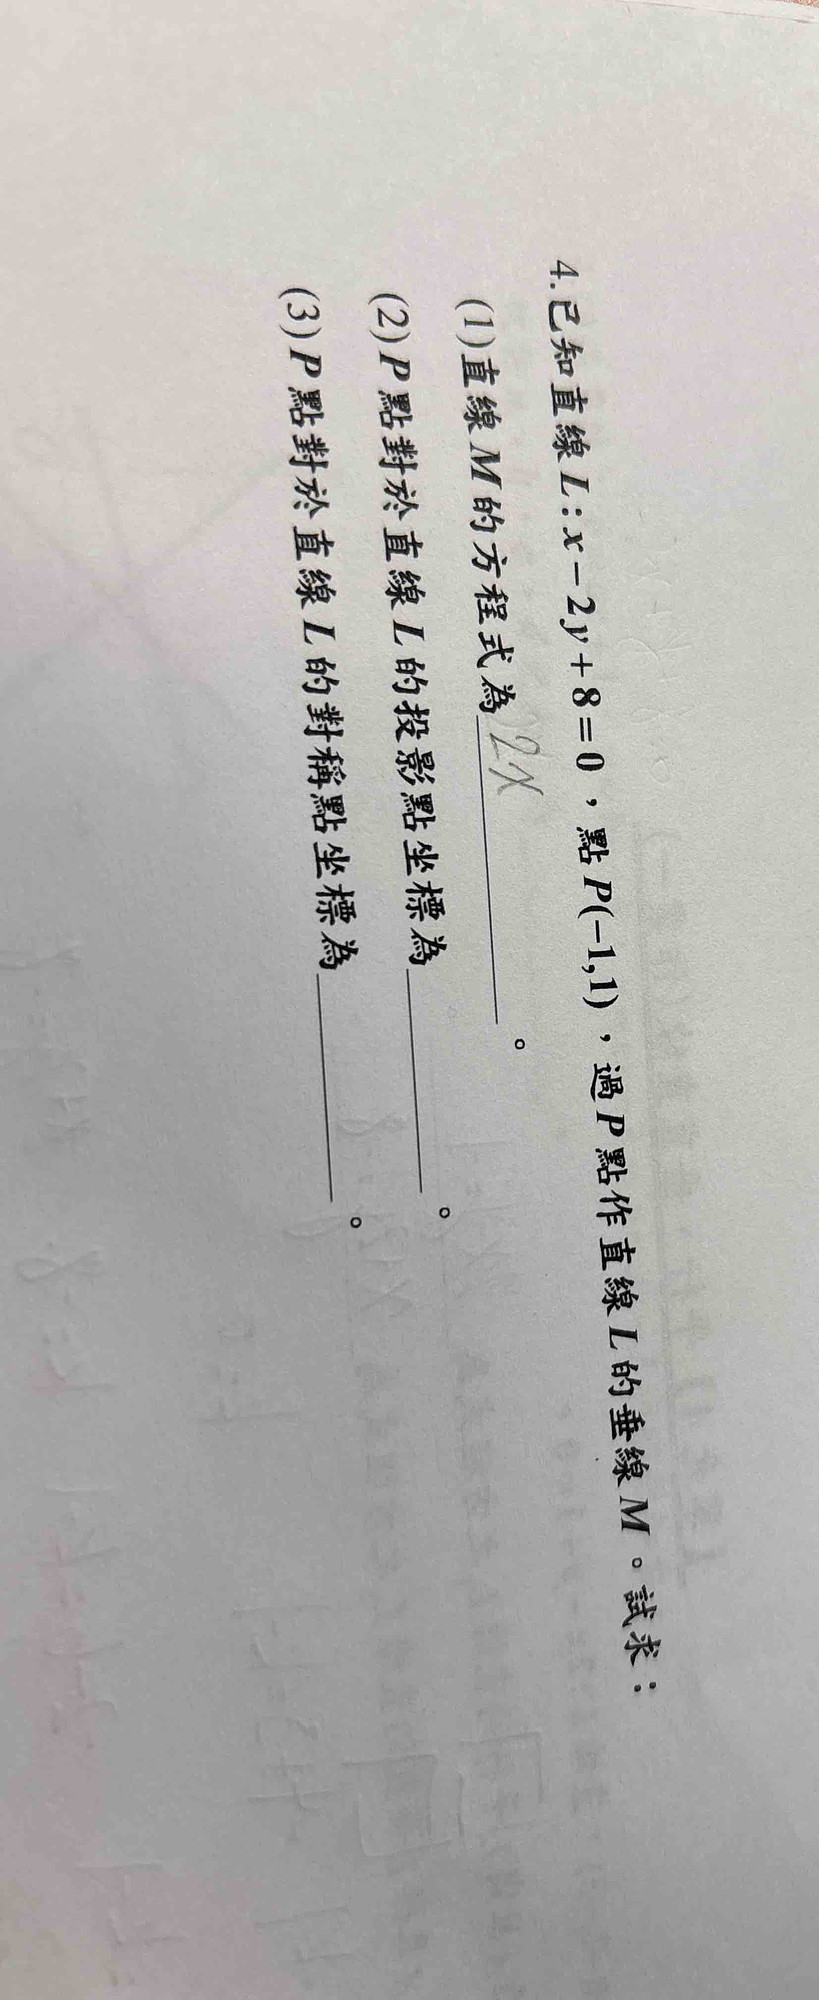 4.已知直線L:x-2y+8=0，點P(-1,1)，過P點作直線L的垂線M。試求：
(1)直線M的方程式為 2x 。
(2)P點對於直線L的投影點坐標為＿＿＿＿。
(3)P點對於直線L的對稱點坐標為＿＿＿＿。